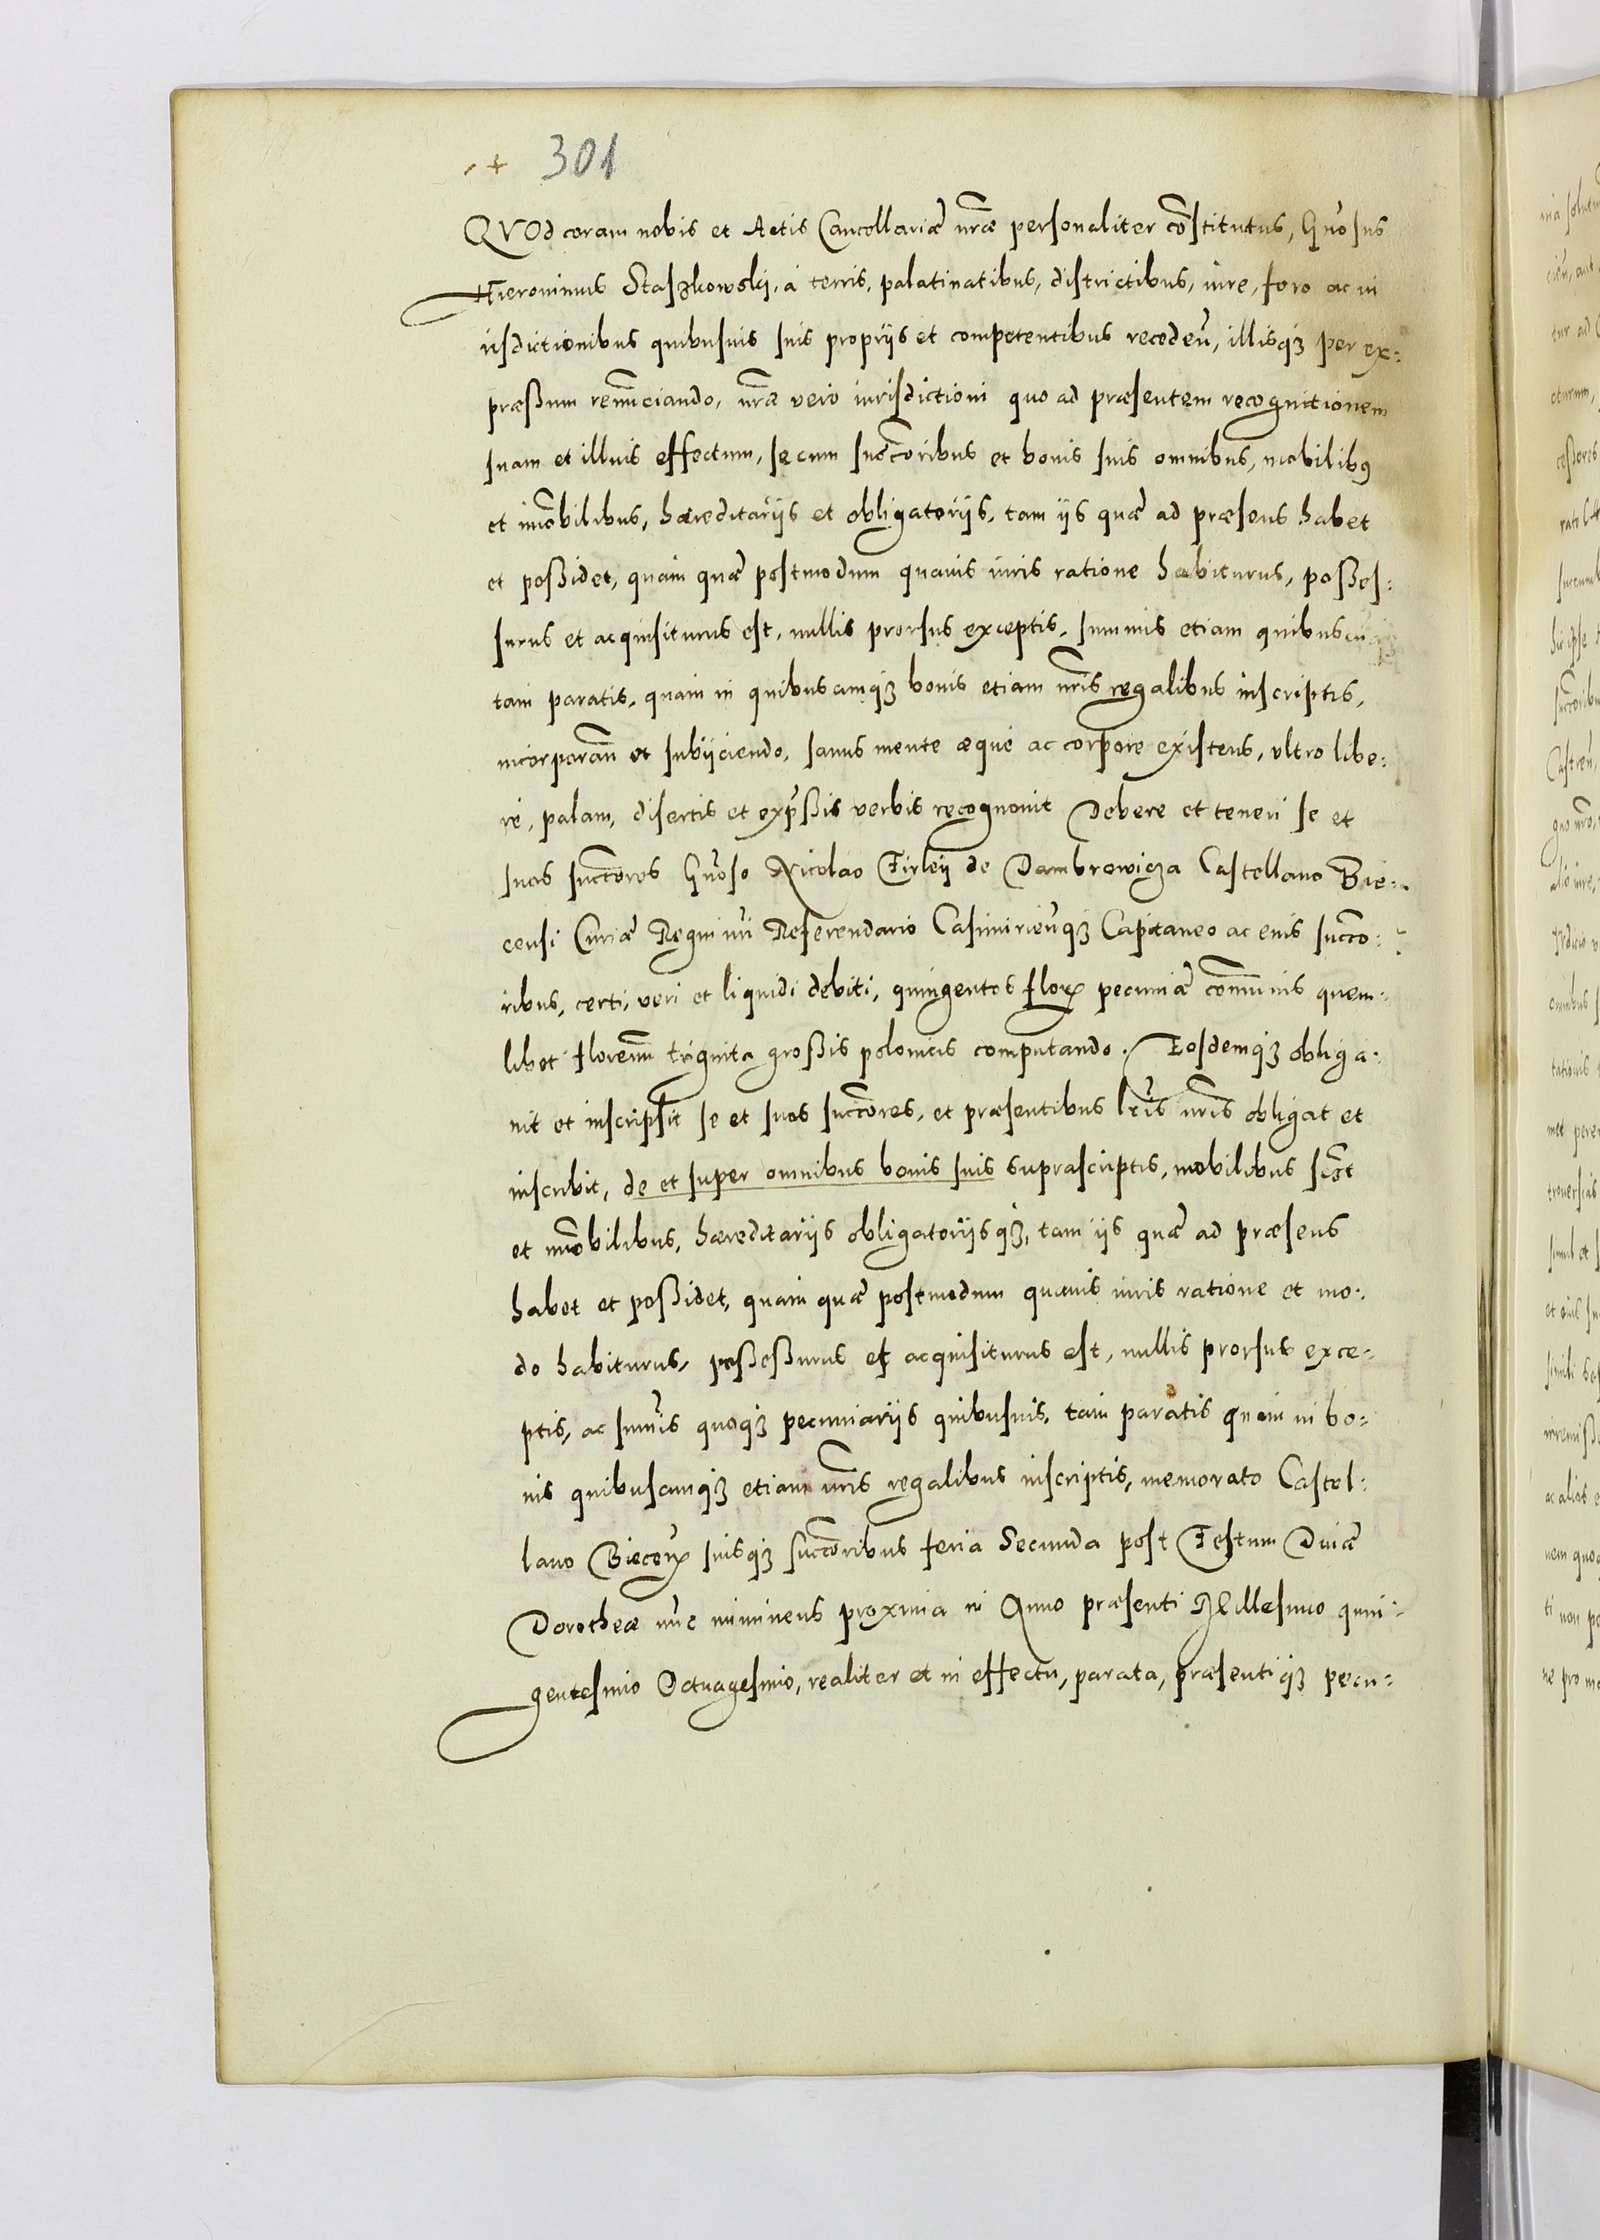 301
QVOd coram nobis et Actis Cancellariæ nrãe personaliter cõstitutus, Gñosus
Hieronimus Staszkowski, à terris, palatinatibus, districtibus, iure, foro ac iu
risdictionibus quibusuis suis proprijs et competentibus recedeñ, illisqȝ per ex:
præssum renũciando, nrãe vero iurisdictioni quo ad præsentem recognitionem
suam et illius effectum, se cum succ̃oribus et bonis suis omnibus, mobilibus
et im̃obilibus, hæreditarijs et obligatorijs, tam ijs quæ ad præsens habet
et possidet, quàm quæ postmodum quauis iuris ratione habiturus, posses:
surus et acquisiturus est, nullis prorsus exceptis, summis etiam quibuscũqȝ
tam paratis, quàm in quibuscumqȝ bonis etiam nr̃is regalibus inscriptis,
incorporañ et subijciendo, sanus mente æque ac corpore existens, vltro libe:
rè, palam, disertis et exp̃ssis verbis recognouit Debere et teneri se et
suos succ̃ores Gñoso Nicolao Firleij de Dambrowicza Castellano Bie:
censi Curiæ Regni nr̃i Referendario Casimirieñqȝ Capitaneo ac eius succ̃o:
ribus, certi, veri et liquidi debiti, quingentos florꝝ pecuniæ com̃unis quem:
libet florenũ triginta grossis polonicis computando. Eosdemqȝ obliga:
uit et inscripsit se et suos succ̃ores, et præsentibus lr̃is nr̃is obligat et
inscribit, de et super omnibus bonis suis suprascriptis, mobilibus scĩ̃t
et im̃obilibus, hæreditarijs obligatorijsqȝ, tam ijs quæ ad præsens
habet et possidet, quàm quæ postmodum quauis iuris ratione et mo:
do habiturus, possessurus et acquisiturus est, nullis prorsus exce:
ptis, ac sum̃is quoqȝ pecuniarijs quibusuis, tam paratis quàm in bo:
nis quibuscumqȝ etiam nr̃is regalibus inscriptis, memorato Castel:
lano Biecenꝝ suisqȝ succ̃oribus feria Secunda post Festum Diuæ
Dorotheæ nũc imminens proxima in Anno præsenti Millesimo quin:
gentesimo Octuagesimo, realiter et in effectu, parata, præsentiqȝ pecu: